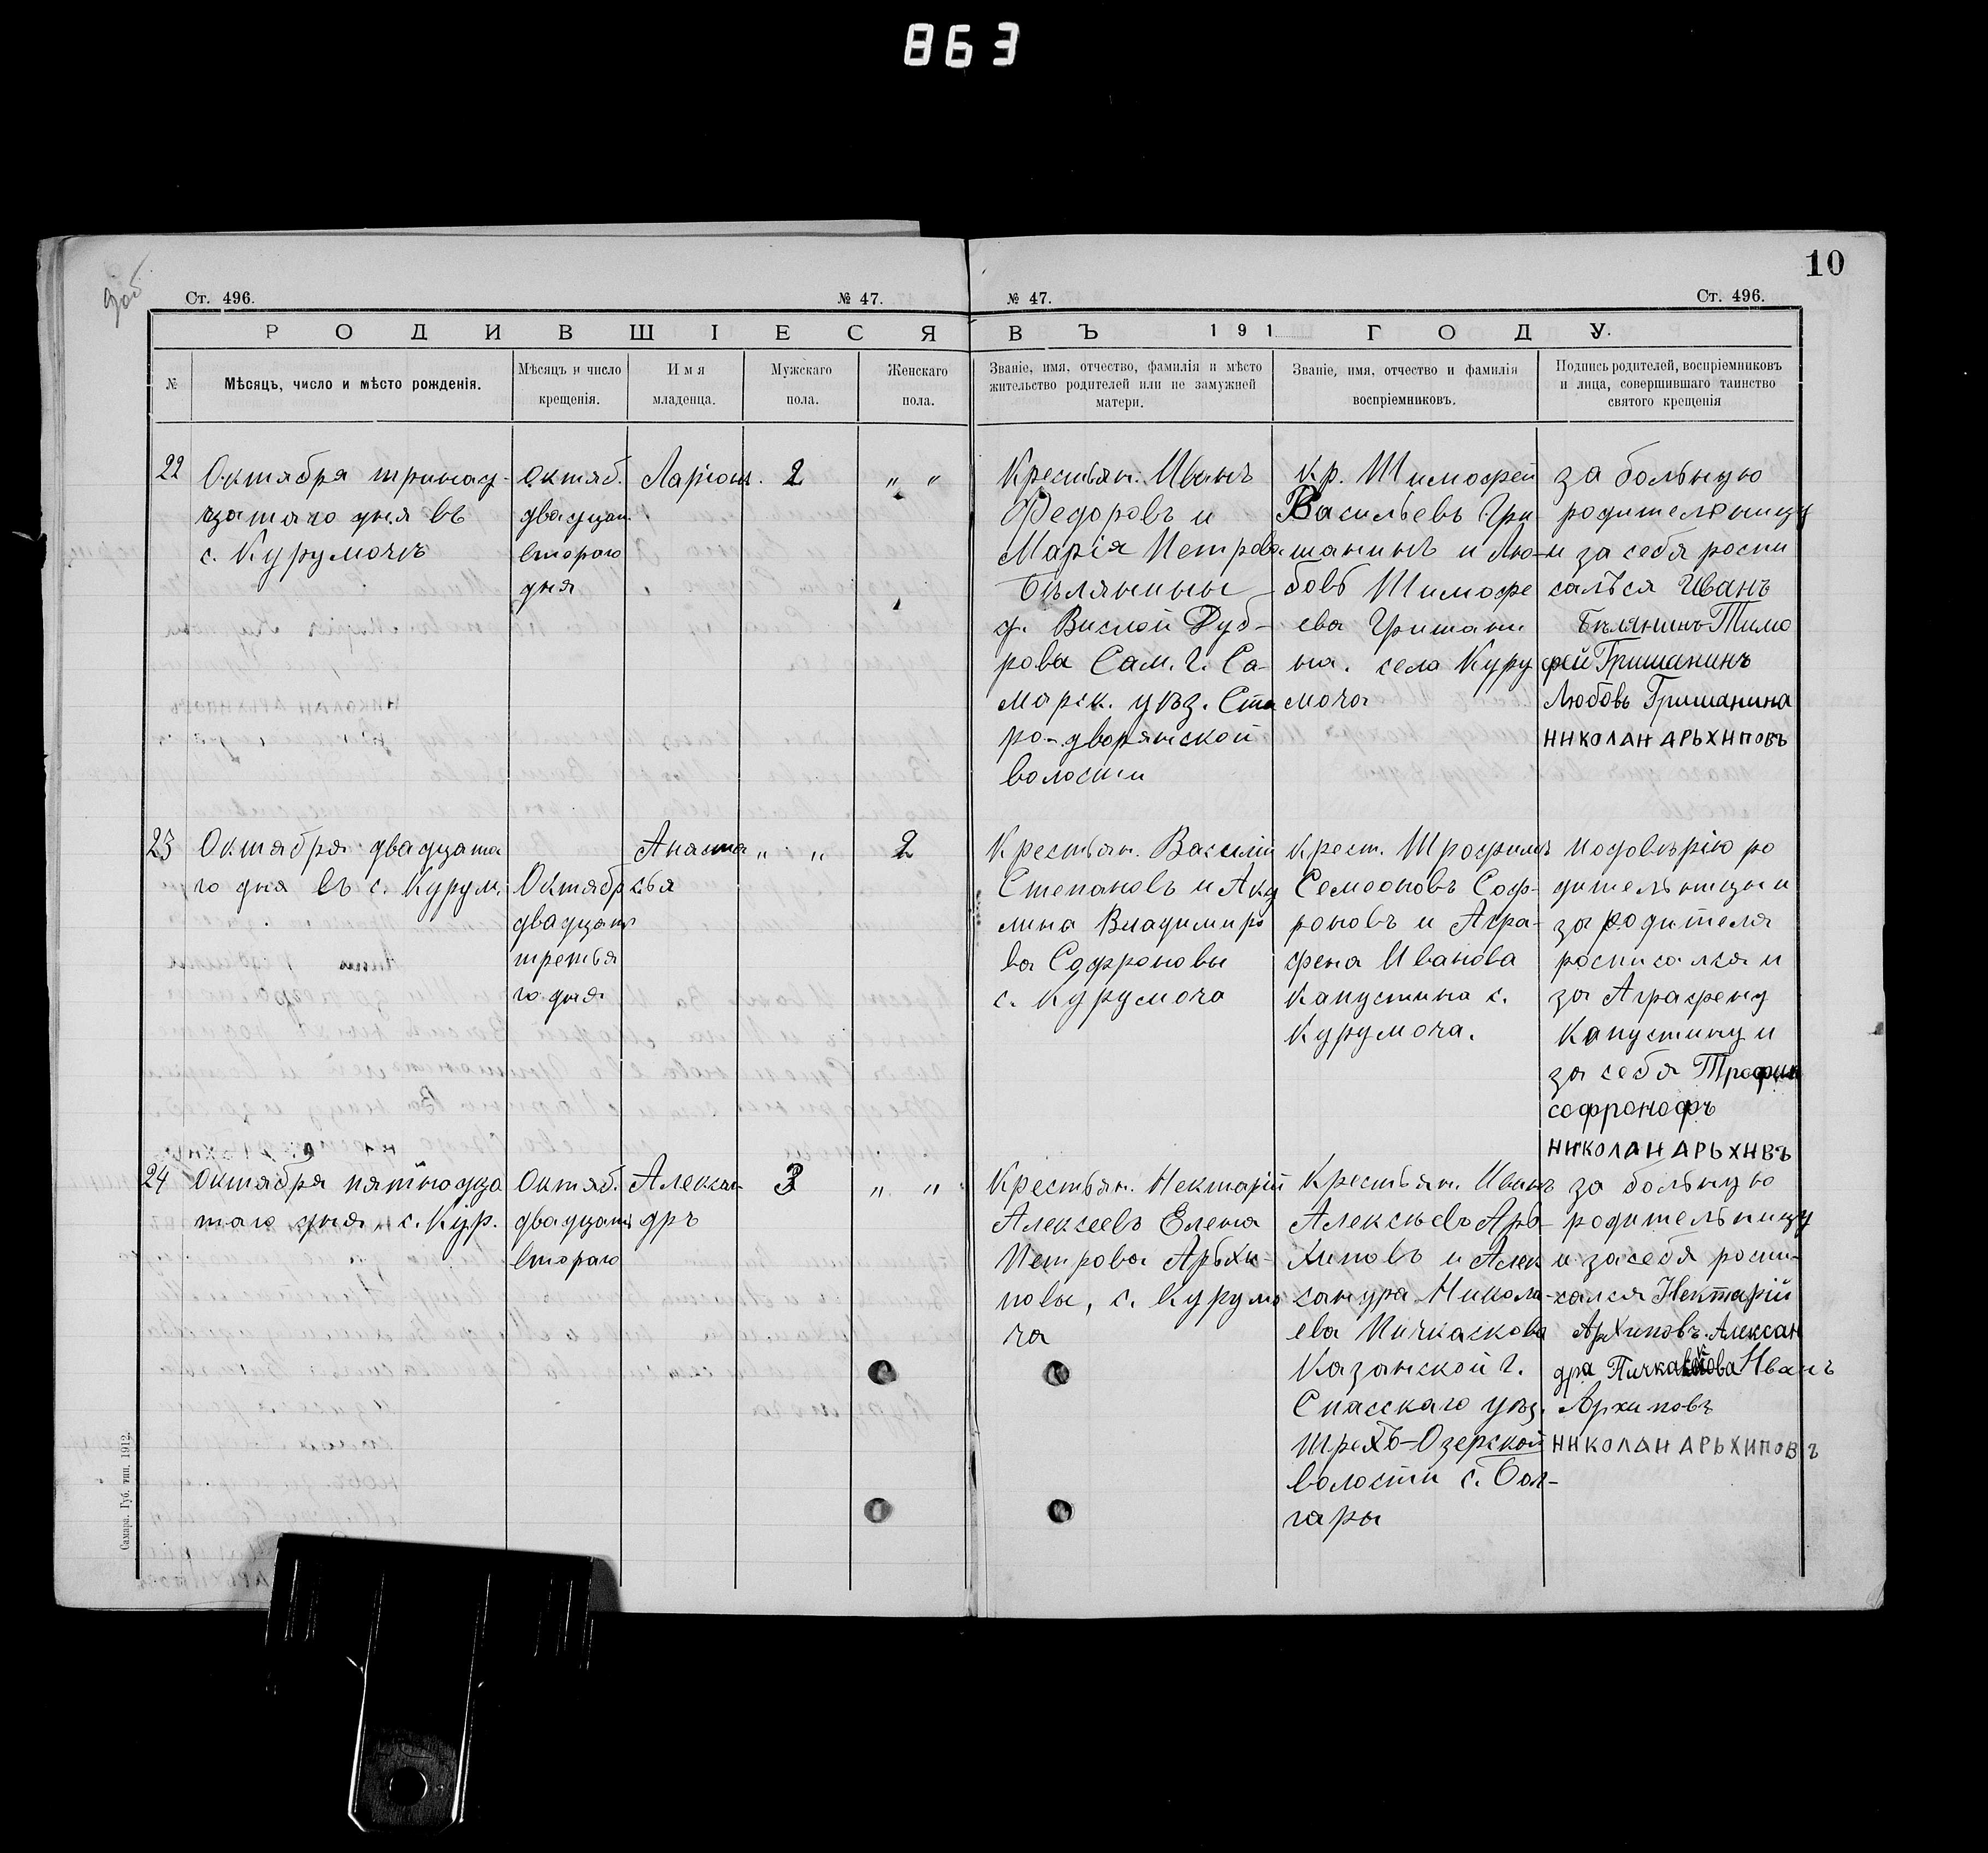 863
10
Ст. 496.
№ 47.
№ 47.
Ст. 496.
РОДИВШІЕСЯ ВЪ 191 ГОДУ.
№
Мѣсяцъ, число и мѣсто рожденія.
Мѣсяцъ и число
крещенія.
Имя
младенца.
Мужскаго
пола.
Женскаго
пола.
Званіе, имя, отчество, фамилія и мѣсто
жительство родителей или не замужней
матери.
Званіе, имя, отчество и фамилія
воспріемниковъ.
Подпись родителей, воспріемниковъ
и лица, совершившаго таинство
святого крещенія
22
Октября тринад-
цатаго дня въ
с. Курумочѣ
октяб.
двадцат.
второго
дня
Ларіон.
2
" "
Крестьян. Иванъ
Федоровъ и
Марія Петрова
Бѣлянины
д. Вислой Дуб-
рова Сам. г. Са-
марск. уѣз. Ста
ро-дворянской
волости
Кр. Тимофей
Васильевъ Гри
шанинъ и Лю-
бовь Тимофе
ева Гришани.
на. села Куру
моча
за больную
родительницу
и за себя роспи
салься Иванъ
Бѣлянинъ Тимо
фей Гришанинъ
Любовь Гришанина
НИКОЛАН АРЬХИПОВЪ
23
Октября двадцата
го дня въ с. Курум.
Октябр
двадцать
третья
го дня
Анаста
сья
" "
2
Крестьян. Василій
Степановъ и Аку
лина Владимиро
ва Софроновы
с. Курумоча
Крест. Трофимъ
Семооновъ Соф-
роновъ и Агра-
фена Иванова
Капустина с.
Курумоча.
по довѣрію ро
дительницы и
за родителя
росписался и
за Аграфену
Капустину и
за себя Трофим
софронофъ
НИКОЛАН АРЬХИВЪ
24
Октября пятнадца
таго дня с. Кур.
Октяб.
двадцать
второго
Алексан-
дръ
3
" "
Крестьян. Нектарій
Алексеевъ Елена
Петрова Арьхи-
повы, с. Курумо
ча
Крестьян. Иванъ
Алексѣевъ Арь-
хиповъ и Алек
сандра Никола-
ева Пичкаскова
Казанской г.
Спасскаго уѣз.
Трехъ-Озерской
волости с. Бол-
гары
за больную
родительницу
и за себя роспи-
сался Нектарій
Архиповъ. Алексан
дра Пичкаскова Иванъ
Архиповъ
НИКОЛАН АРЬХИПОВЪ
Самара. Губ. тип. 1912.